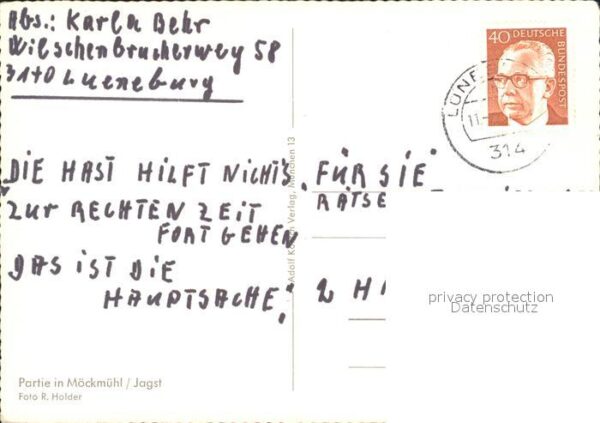 Abs.: Karla Behr
Wilschenbrucherweg 58
3140 Lueneburg
40 DEUTSCHE BUNDESPOST
LÜNE
11.
314
DIE HAST HILFT NICHTS,
ZUR RECHTEN ZEIT
FORTGEHEN
DAS IST DIE
HAUPTSACHE.
FÜR SIE
RÄTSE
2 HI
Adolf Korsch Verlag, München 13
privacy protection
Datenschutz
Partie in Möckmühl / Jagst
Foto R. Holder